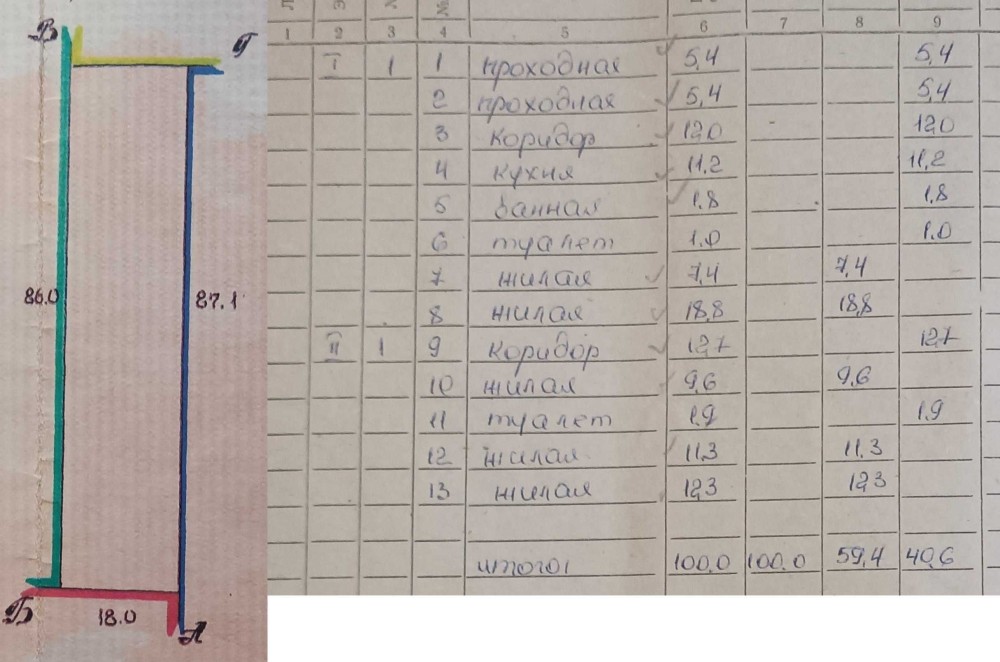 В
Г
86.0
87.1
Б
18.0
А
1 2 3 4 5 6 7 8 9
I 1 1 проходная 5,4 5,4
2 проходная 5,4 5,4
3 коридор 12,0 12,0
4 кухня 11,2 11,2
5 ванная 1,8 1,8
6 туалет 1.0 1.0
7 жилая 7,4 7,4
8 жилая 18,8 18,8
II 1 9 коридор 12,7 12,7
10 жилая 9,6 9,6
11 туалет 1,9 1.9
12 жилая 11,3 11,3
13 жилая 12,3 12,3
итого: 100,0 100,0 59,4 40,6